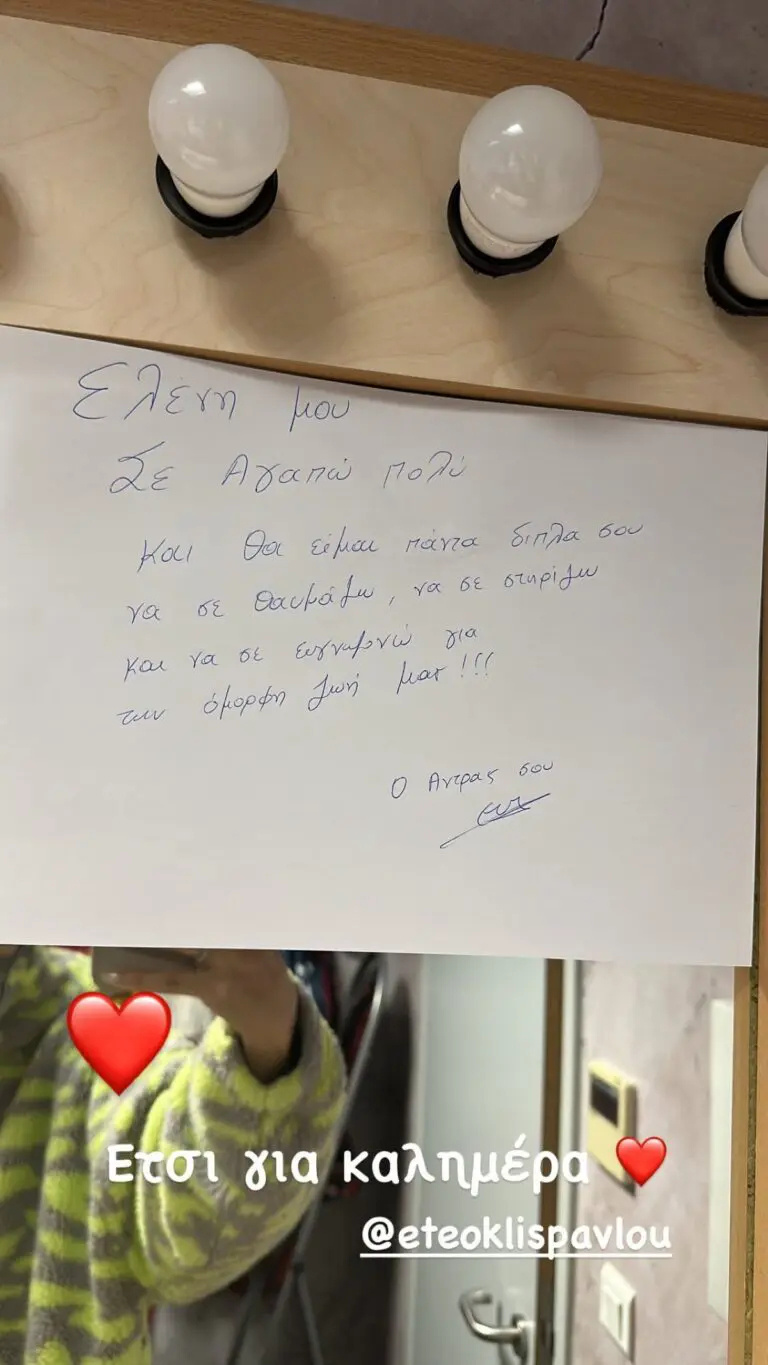 Ελένη μου
Σε Αγαπώ πολύ
και θα είμαι πάντα διπλα σου
να σε θαυμάζω, να σε στηρίζω
και να σε ευγνωμονώ για
την όμορφη ζωή μας!!!
Ο Αντρας σου
Ετσι για καλημέρα ❤️
@eteoklispavlou